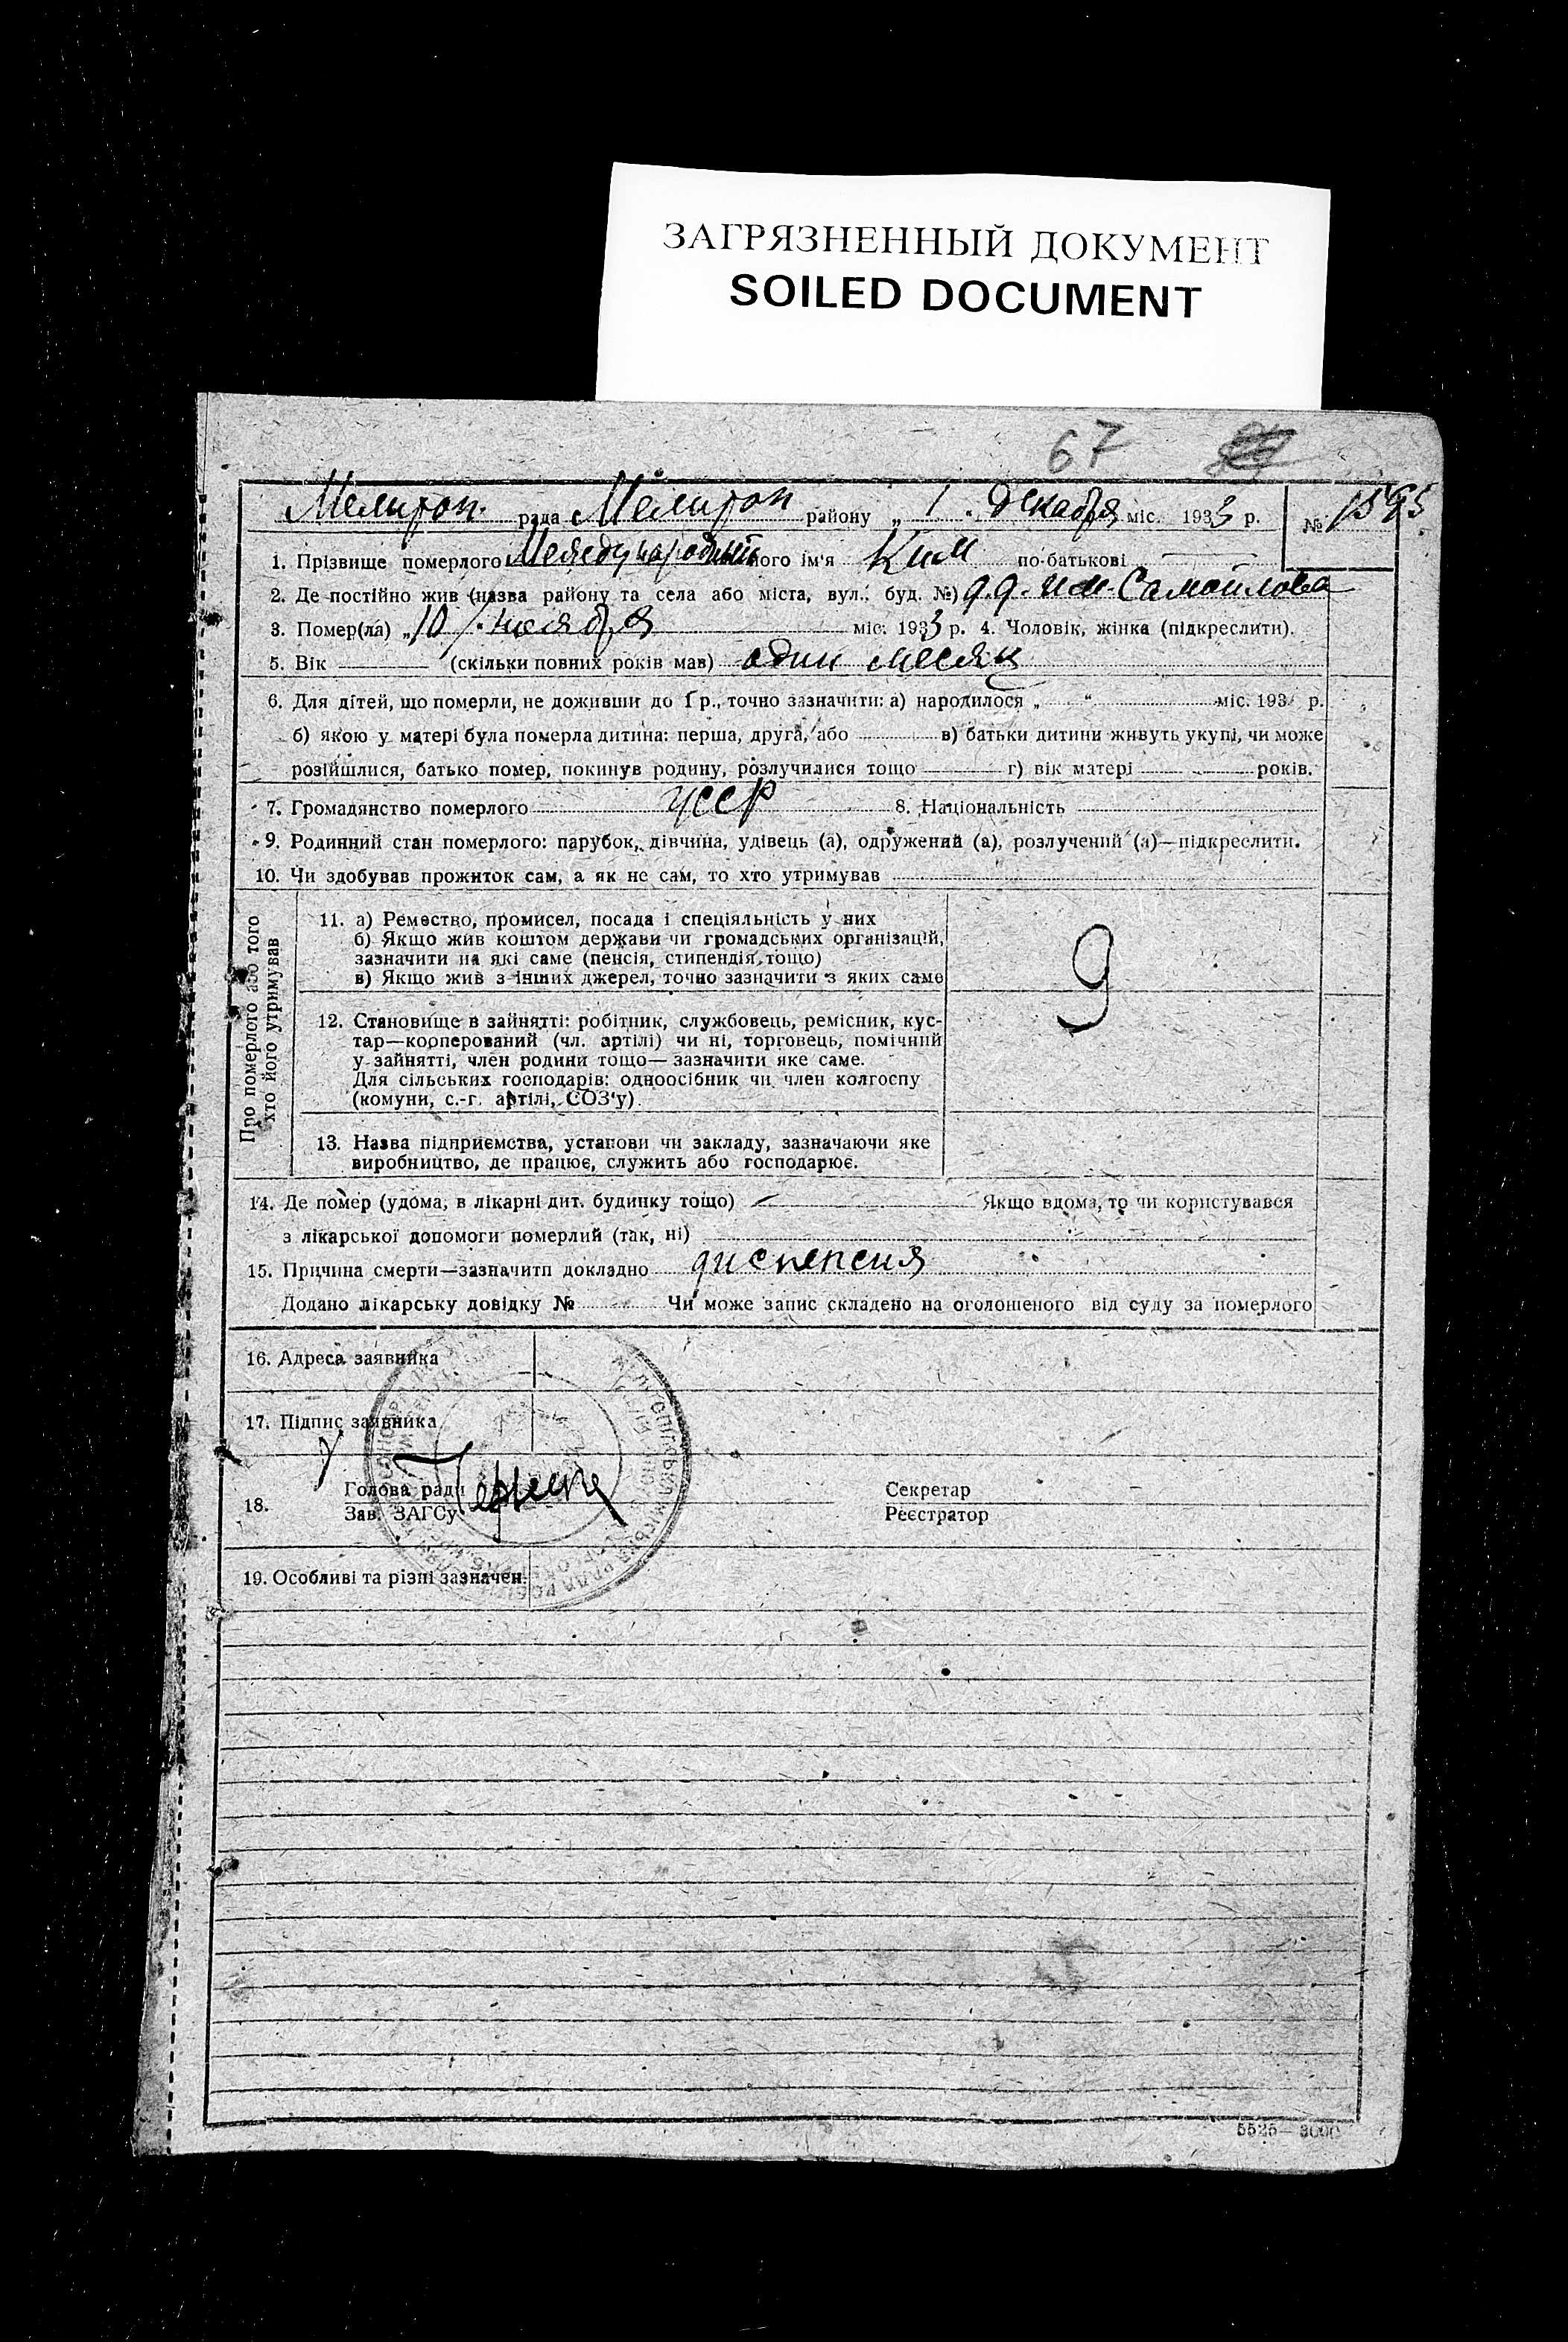 ЗАГРЯЗНЕННЫЙ ДОКУМЕНТ
SOILED DOCUMENT
67
Мелитоп. рада Мелитоп району „ 1 . декабря міс. 1933 р. № 1595
1. Прізвище померлого Международный його ім'я Ким по-батькові
2. Де постійно жив (назва району та села або міста, вул.: буд. №) д.д. им. Самойлова
3. Помер(ла) „10/. ноября міс. 1933 р. 4. Чоловік, жінка (підкреслити).
5. Вік (скільки повних років мав) один месяц
6. Для дітей, що померли, не доживши до 1 р., точно зазначити: а) народилося „ “ міс. 193 р.
б) якою у матері була померла дитина: перша, друга, або в) батьки дитини живуть укупі, чи може
розійшлися, батько помер, покинув родину, розлучилися тощо г) вік матері років.
7. Громадянство померлого УССР 8. Національність
9. Родинний стан померлого: парубок, дівчина, удівець (а), одружений (а), розлучений (а)—підкреслити.
10. Чи здобував прожиток сам, а як не сам, то хто утримував
Про померлого або того
хто його утримував
11. а) Ремество, промисел, посада і спеціяльність у них
б) Якщо жив коштом держави чи громадських організацій,
зазначити на які саме (пенсія, стипендія тощо)
в) Якщо жив з інших джерел, точно зазначити з яких саме
9
12. Становище в зайнятті: робітник, службовець, ремісник, кус-
тар—кооперований (чл. артілі) чи ні, торговець, помічний
у зайнятті, член родини тощо— зазначити яке саме.
Для сільських господарів: одноосібник чи член колгоспу
(комуни, с.-г. артілі, СОЗ'у)
13. Назва підприємства, установи чи закладу, зазначаючи яке
виробництво, де працює, служить або господарює.
14. Де помер (удома, в лікарні дит. будинку тощо) Якщо вдома, то чи користувався
з лікарської допомоги померлий (так, ні)
15. Причина смерти—зазначити докладно диспепсия
Додано лікарську довідку № Чи може запис складено на оголошеного від суду за померлого
16. Адреса заявника
17. Підпис заявника
18. Голова ради Секретар
Зав. ЗАГСу Реєстратор
19. Особливі та різні зазначен.
5525— 3000